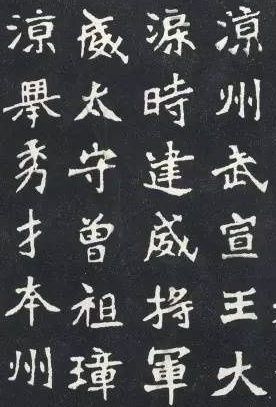 涼州武宣王大
渠時建威將軍
威太守曾祖璋
涼舉秀才本州